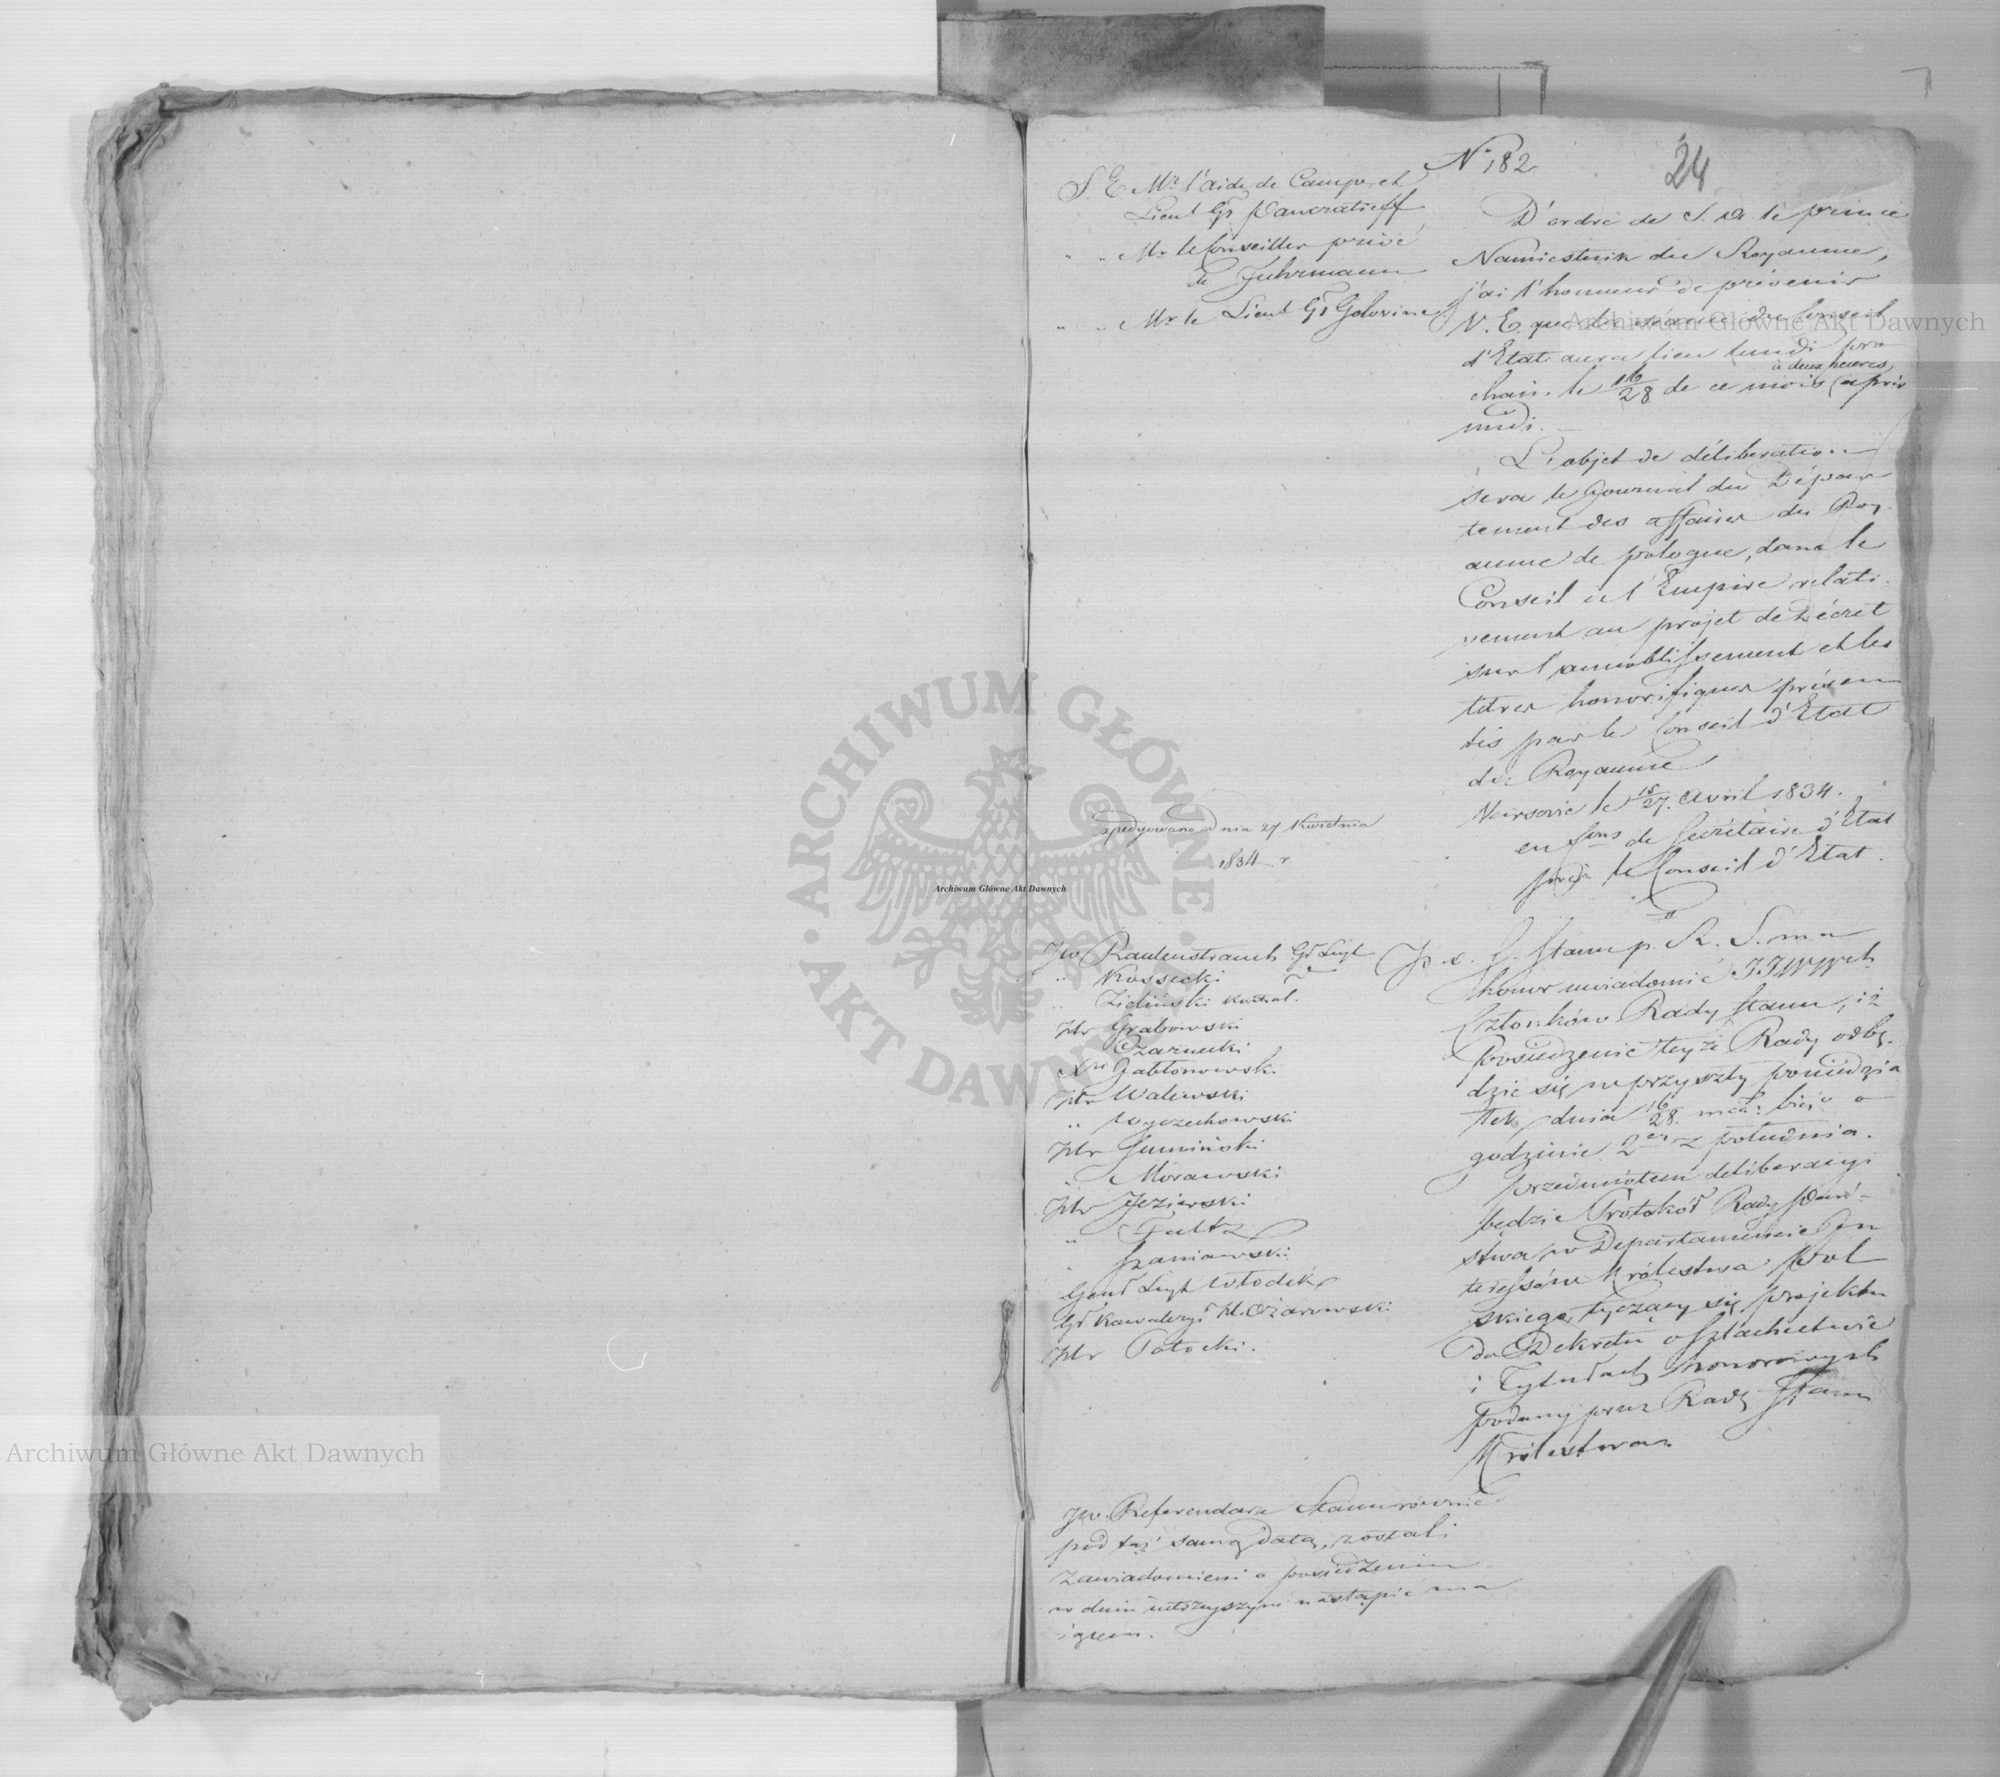 N° 182
24
S. E. Mr l'aide de Camp et
Lieut Gl Pancratieff
" " Mr le Conseiller privé
de Fuhrmann
" " Mr le Lieut Gl Golovine
D'ordre de S. A. le prince
Namiestnik du Royaume,
j'ai l'honneur de prévenir
V. E. que la séance du Conseil
d'Etat aura lieu lundi pro
chain, le 16/28 de ce mois à deux heures après
midi.
L'objet de déliberation
sera le Journal du Dépar
tement des affaires du Roy-
aume de pologne, dans le
Conseil de l'Empire relati-
vement au projet de Décret
sur l'annoblissement et les
titres honorifiques présen
tés par le Conseil d'Etat
du Royaume
Varsovie le 15/27 Avril 1834.
en fons de Secrétaire d'Etat
près le Conseil d'Etat.
Expedyowano dnia 27 Kwietnia
1834 r
JW Rautenstrauch Gł Lejt
" Kossecki
" Zieliński
JW Grabowski
Czarnecki
Xże Jabłonowski
JW Walewski
" Wyczechowski
JW Gumiński
" Morawski
JW Jezierski
" Faltz
" Szaniawski
Genł Lejt Włodek
Gł Kawaleryi H. Ożarowski
JW Potocki.
p. o. S. Stanu p. R. S. ma
honor uwiadomić JJWWch
Członków Rady Stanu, iż
Posiedzenie teyże Rady odbę-
dzie się w przyszły poniedzia
łek dnia 16/28 mca bież o
godzinie 2ey z południa.
Przedmiotem deliberacyi
będzie Protokół Rady Pań-
stwa w Departamencie In
teressów Królestwa Pol
skiego, tyczący się projektu
do Dekretu o Szlachectwie
i Tytułach honorowych
podany przez Radę Stanu
Królestwa.
JW. Referendarze Stanu równie
pod tąż samą datą, zostali
zawiadomieni o posiedzeniu
w dniu jutrzeyszym nastąpić ma
jącem.
Archiwum Główne Akt Dawnych
ARCHIWUM GŁÓWNE AKT DAWNYCH
Archiwum Główne Akt Dawnych
Archiwum Główne Akt Dawnych